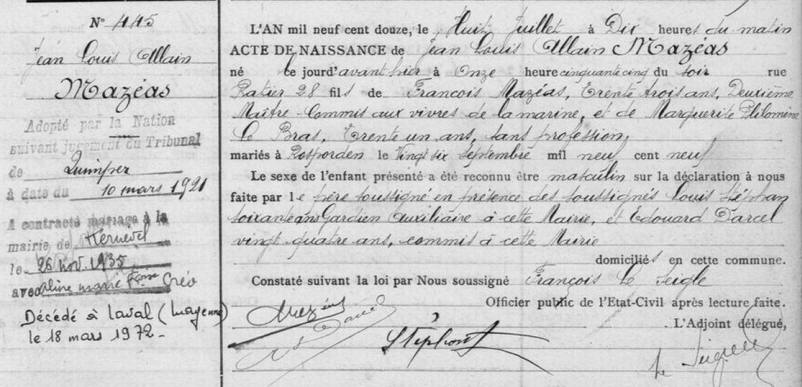 N° 445
Jean Louis Allain
Mazéas
Adopté par la Nation
suivant jugement du Tribunal
de Quimper
à date du 10 mars 1921
A contracté mariage à la
mairie de
le 26 nov. 1935
avec marie
Décédé à Laval (Mayenne)
le 18 mars 1972-
L'AN mil neuf cent douze, le Huit Juillet à Dix heures du matin
ACTE DE NAISSANCE de Jean Louis Allain Mazéas
né ce jourd'avant hier à Onze heure cinquante cinq du soir rue
Ratier 28 fils de Francois Mazéas, Trente trois ans, Deuxième
Maître-Commis aux vivres de la marine, et de Marguerite Philomène
Le Bras, Trente un ans, sans profession,
mariés à Rosporden le Vingt six Septembre mil neuf cent neuf
Le sexe de l'enfant présenté a été reconnu être masculin sur la déclaration à nous
faite par le père soussigné en présence des soussignés Louis Stéphan
soixante ans Gardien Auxiliaire à cette Mairie, et Edouard Darcel
vingt quatre ans, commis à cette Mairie
domiciliés en cette commune.
Constaté suivant la loi par Nous soussigné François Le Seigle
Officier public de l'Etat-Civil après lecture faite.
L'Adjoint délégué,
Mazéas
Stéphan